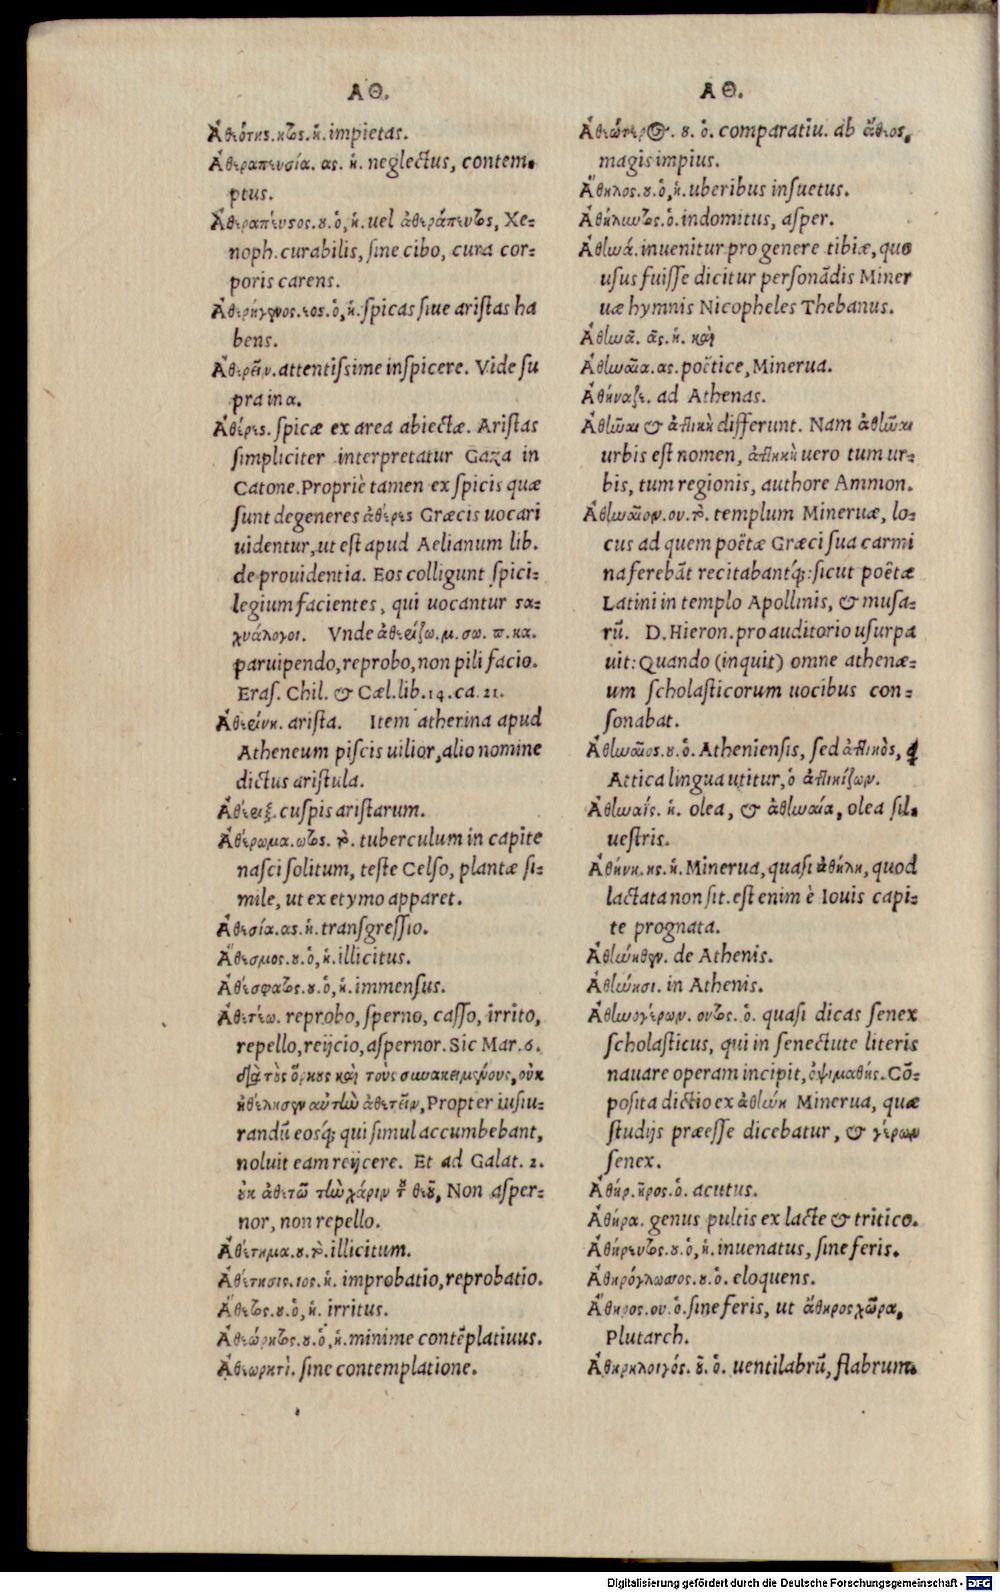 ΑΘ.
Ἀθεότης.ητος.ἡ. impietas.
Ἀθεραπευσία. ας. ἡ. neglectus, contem-
ptus.
Ἀθεράπευσος.ου.ὁ,ἡ. uel ἀθεράπευτος, Xe-
noph. curabilis, sine cibo, cura cor-
poris carens.
Ἀθερηγενος.εος.ὁ,ἡ. spicas siue aristas ha
bens.
Ἀθερεῖν. attentissime inspicere. Vide su
pra in α.
Ἀθέρες. spicæ ex area abiectæ. Aristas
simpliciter interpretatur Gaza in
Catone. Propriè tamen ex spicis quæ
sunt degeneres ἀθέρες Græcis uocari
uidentur, ut est apud Aelianum lib.
de prouidentia. Eos colligunt spici-
legium facientes, qui uocantur σα-
χυάλογοι. Vnde ἀθερίζω. μ. σω. π. κα.
paruipendo, reprobo, non pili facio.
Eras. Chil. & Cæl. lib. 14. ca. 21.
Ἀθερίνη. arista. Item atherina apud
Atheneum piscis uilior, alio nomine
dictus aristula.
Ἀθέριξ. cuspis aristarum.
Ἀθέρωμα. ατος. τὸ. tuberculum in capite
nasci solitum, teste Celso, plantæ si-
mile, ut ex etymo apparet.
Ἀθεσία. ας. ἡ. transgressio.
Ἄθεσμος. ου. ὁ, ἡ. illicitus.
Ἀθέσφατος. ου. ὁ, ἡ. immensus.
Ἀθετέω. reprobo, sperno, casso, irrito,
repello, reijcio, aspernor. Sic Mar. 6.
διὰ τοὺς ὅρκους καὶ τοὺς συνακειμένους, οὐκ
ἠθέλησεν αὐτὴν ἀθετεῖν, Propter iusiu-
randũ eosq́; qui simul accumbebant,
noluit eam reijcere. Et ad Galat. 2.
οὐκ ἀθετῶ τὴν χάριν τοῦ θεοῦ, Non asper-
nor, non repello.
Ἀθέτημα. ου. τὸ. illicitum.
Ἀθέτησις. ιος. ἡ. improbatio, reprobatio.
Ἄθετος. ου. ὁ, ἡ. irritus.
Ἀθεώρητος. ου. ὁ, ἡ. minime contẽplatiuus.
Ἀθεωρητὶ. sine contemplatione.
ΑΘ.
Ἀθεώτερος. ου. ὁ. comparatiu. ab ἄθεος,
magis impius.
Ἄθηλος. ου. ὁ, ἡ. uberibus insuetus.
Ἀθήλυντος. ὁ. indomitus, asper.
Ἀθηνά. inuenitur pro genere tibiæ, quo
usus fuisse dicitur personãdis Miner
uæ hymnis Nicopheles Thebanus.
Ἀθηνᾶ. ᾶς. ἡ. καὶ
Ἀθηναῖα. ας. poëtice, Minerua.
Ἀθήναζε. ad Athenas.
Ἀθῆναι & ἀττικὴ differunt. Nam ἀθῆναι
urbis est nomen, ἀττικὴ uero tum ur-
bis, tum regionis, authore Ammon.
Ἀθηναῖον. ου. τὸ. templum Mineruæ, lo-
cus ad quem poëtæ Græci sua carmi
na ferebãt recitabantq́;: sicut poëtæ
Latini in templo Apollinis, & musa-
rũ. D. Hieron. pro auditorio usurpa
uit: Quando (inquit) omne athenæ-
um scholasticorum uocibus con-
sonabat.
Ἀθηναῖος. ου. ὁ. Atheniensis, sed ἀττικὸς, q
Attica lingua utitur, ὁ ἀττικίζων.
Ἀθηναΐς. ἡ. olea, & ἀθηναία, olea sil-
uestris.
Ἀθήνη. ης. ἡ. Minerua, quasi ἀθήλη, quod
lactata non sit. est enim è Iouis capi-
te prognata.
Ἀθήνηθεν. de Athenis.
Ἀθήνησι. in Athenis.
Ἀθηνογέρων. οντος. ὁ. quasi dicas senex
scholasticus, qui in senectute literis
nauare operam incipit, ὀψιμαθής. Cõ-
posita dictio ex ἀθήνη Minerua, quæ
studijs præesse dicebatur, & γέρων
senex.
Ἀθήρ. ῆρος. ὁ. acutus.
Ἀθήρα. genus pultis ex lacte & tritico.
Ἀθήρευτος. ου. ὁ, ἡ. inuenatus, sine feris.
Ἀθηρόγλωσσος. ου. ὁ. eloquens.
Ἄθηρος. ου. ὁ. sine feris, ut ἄθηρος χῶρα,
Plutarch.
Ἀθηρηλοιγός. οῦ. ὁ. uentilabrũ, flabrum.
Digitalisierung gefördert durch die Deutsche Forschungsgemeinschaft - DFG